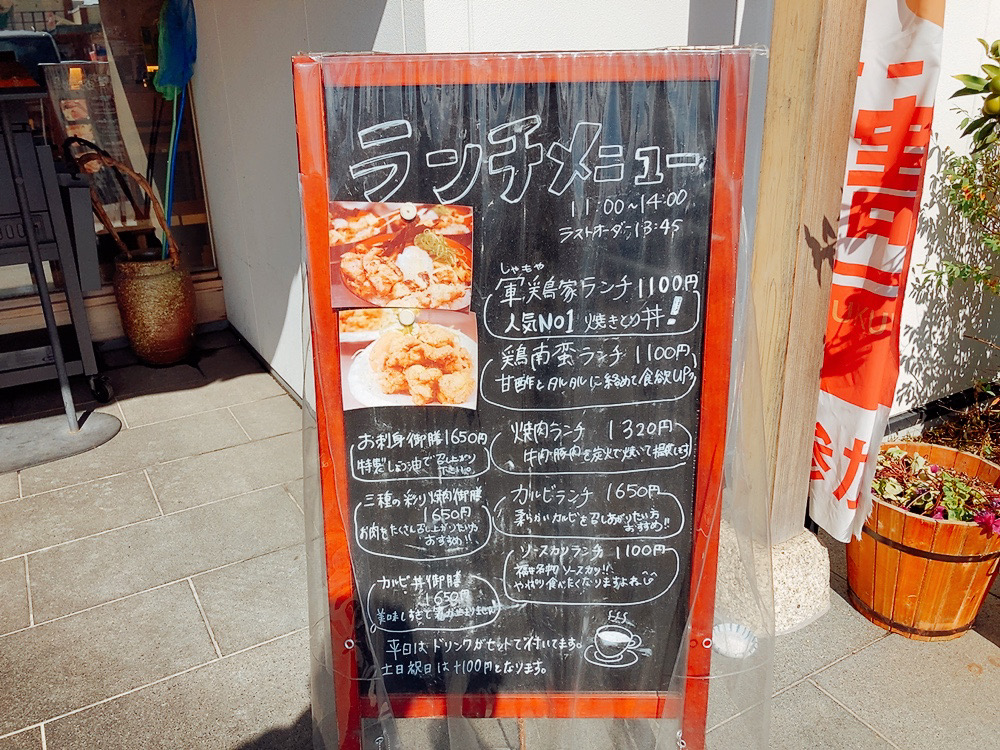 ランチメニュー
11:00~14:00
ラストオーダー13:45
しゃもや
軍鶏家ランチ 1100円
人気NO1 焼きとり丼!
鶏南蛮ランチ 1100円
甘酢とタルタルに絡めて食欲UP
焼肉ランチ 1320円
牛肉・豚肉を炭火で焼いて提供します
カルビランチ 1650円
柔らかいカルビを召しあがりたい方
おすすめ!!
ソースカツランチ 1100円
福井名物ソースカツ!!
やっぱり食べたくなりますよね^^
お刺身御膳1650円
特製しょう油で召し上がり
下さい。
三種の彩り焼肉御膳
1650円
お肉をたくさん召し上がりたい方
おすすめ!!
カルビ丼御膳
1650円
美味しすぎて箸が止まりません
平日はドリンクがセットで付いてます。
土日祝日は+100円となります。